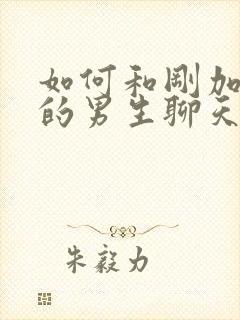 如何和刚加
的男生聊天
朱毅力